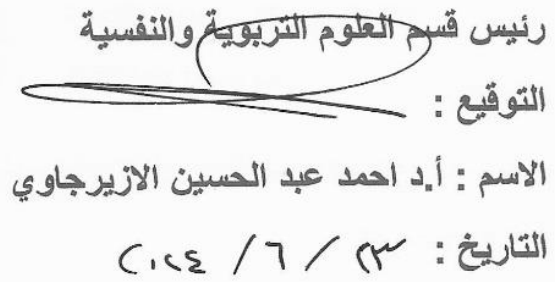 رئيس قسم العلوم التربوية والنفسية
التوقيع :
الاسم : أ.د احمد عبد الحسين الازيرجاوي
التاريخ : ٢٣ / ٦ / ٢٠٢٤